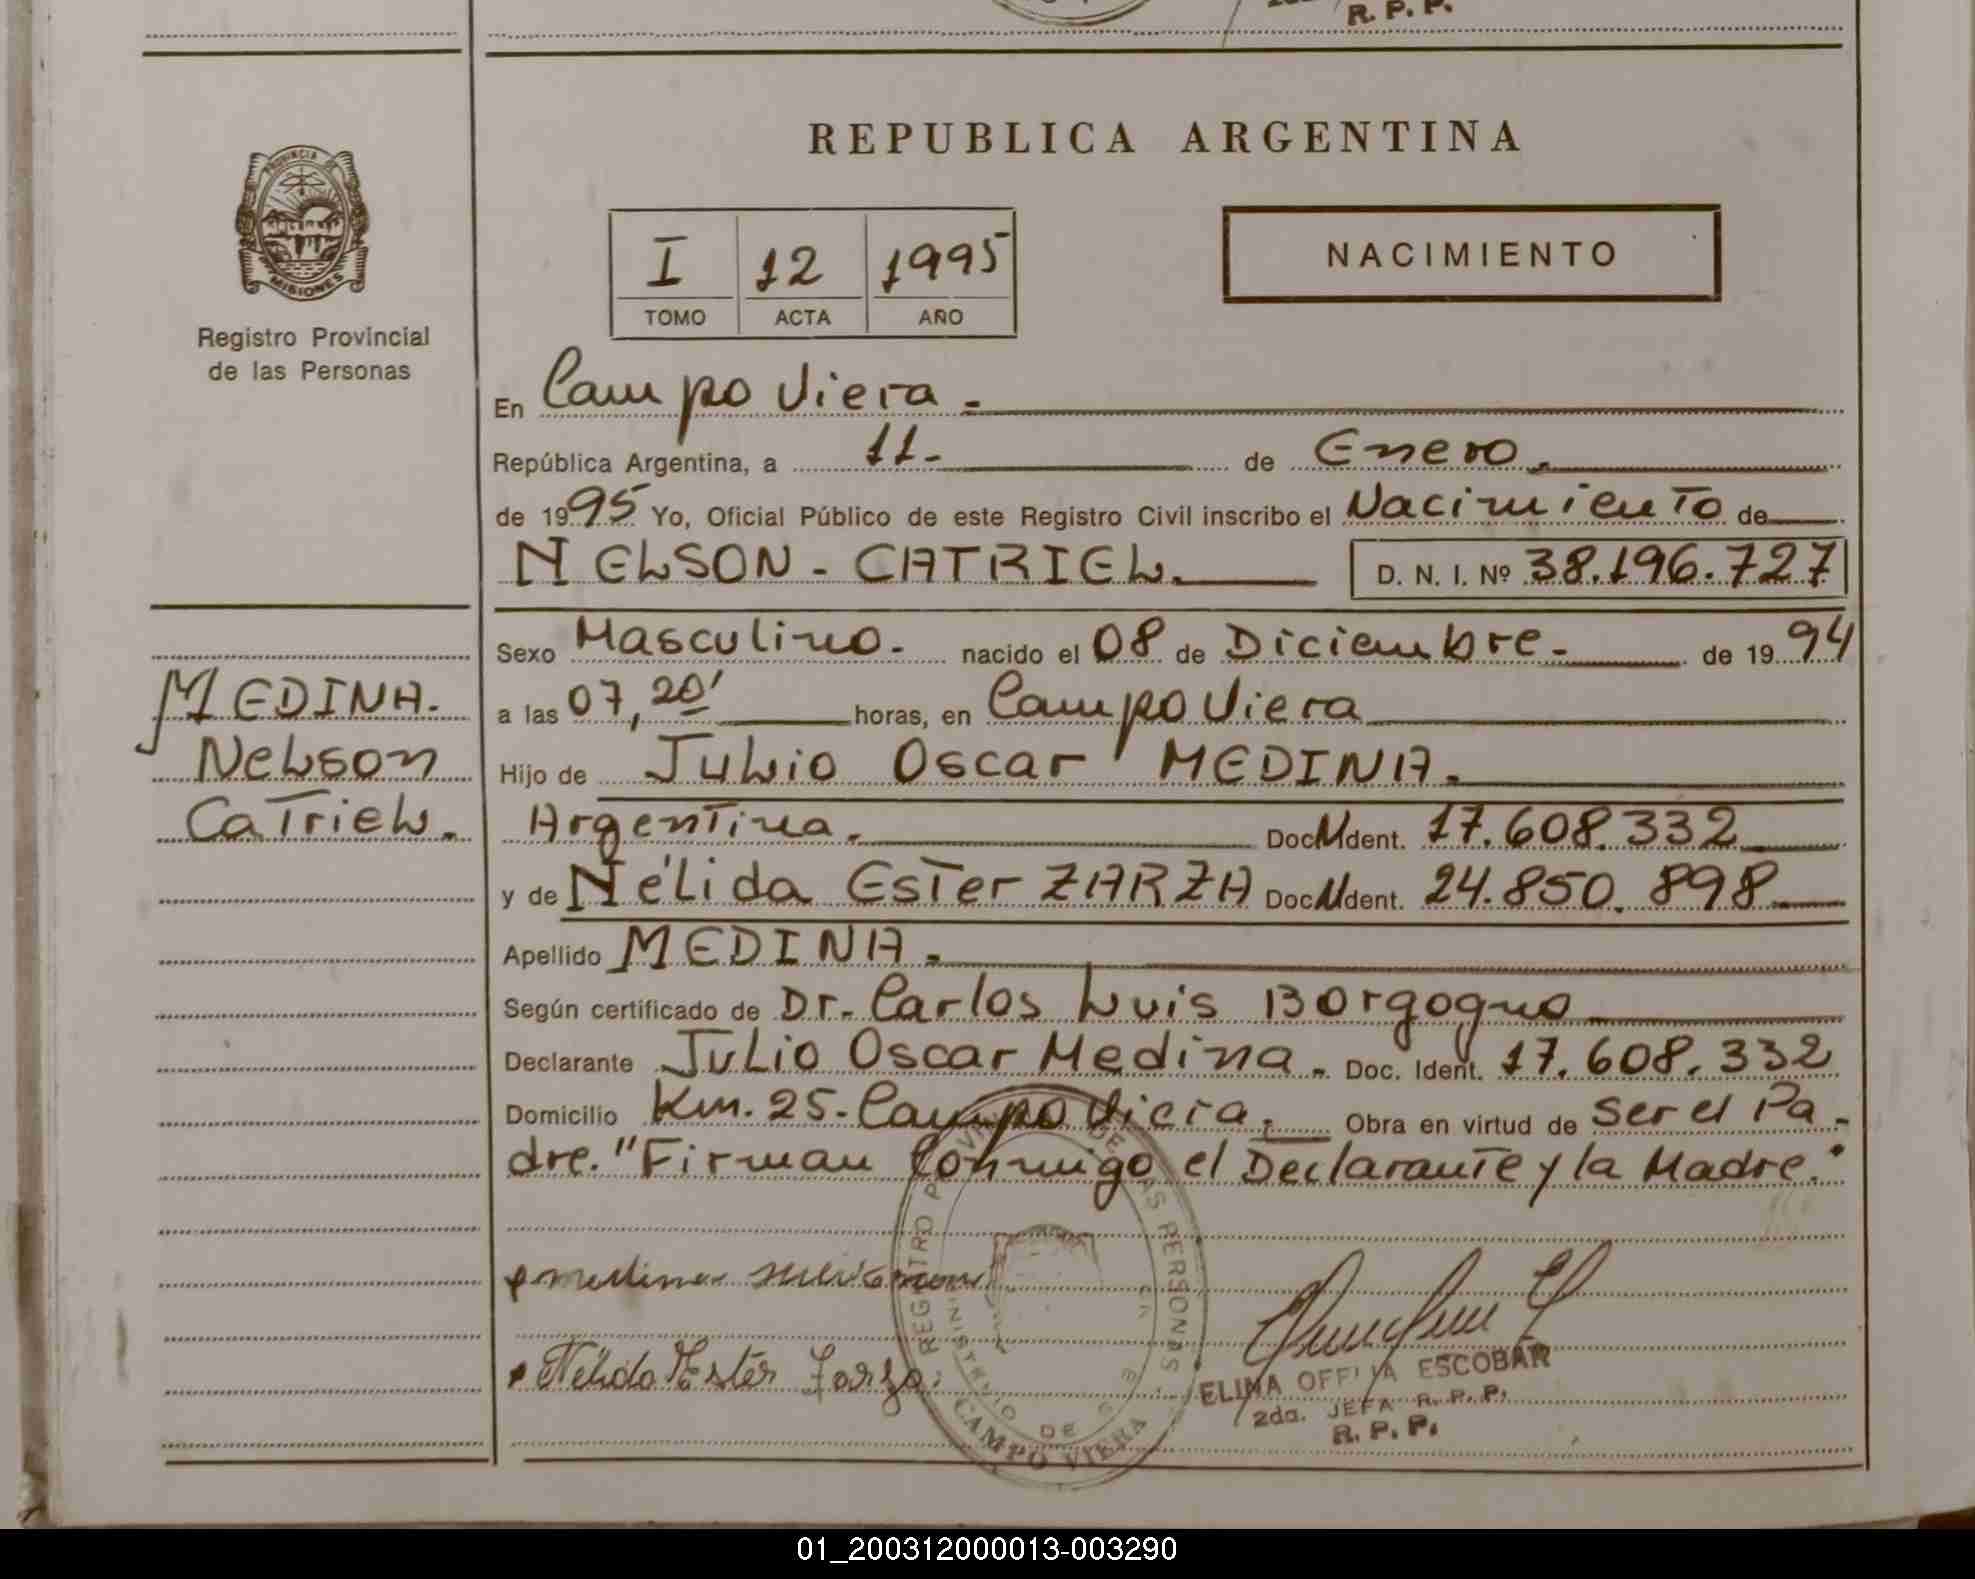 R. P. P.
PROVINCIA DE
MISIONES
Registro Provincial
de las Personas
REPUBLICA ARGENTINA
I 12 1995
TOMO ACTA AÑO
NACIMIENTO
En Campo Viera.
República Argentina, a 11. de Enero.
de 1995 Yo, Oficial Público de este Registro Civil inscribo el Nacimiento de
NELSON - CATRIEL. D. N. I. Nº 38.196.727
Sexo Masculino. nacido el 08 de Diciembre. de 1994
a las 07,20' horas, en Campo Viera
Hijo de Julio Oscar MEDINA.
Argentina. Doc. Ident. 17.608.332
y de Nélida Ester ZARZA Doc. Ident. 24.850.898
Apellido MEDINA.
Según certificado de Dr. Carlos Luis Borgogno
Declarante Julio Oscar Medina. Doc. Ident. 17.608.332
Domicilio Km. 25. Campo Viera. Obra en virtud de Ser el Pa-
dre. "Firman Conmigo el Declarante y la Madre."
MEDINA.
Nelson
Catriel.
medina
Nélida Ester Zarza
REGISTRO DE LAS PERSONAS
MINISTERIO DE
CAMPO VIERA
ELINA ESCOBAR
2da. JEFA R. P. P.
R. P. P.
01_200312000013-003290